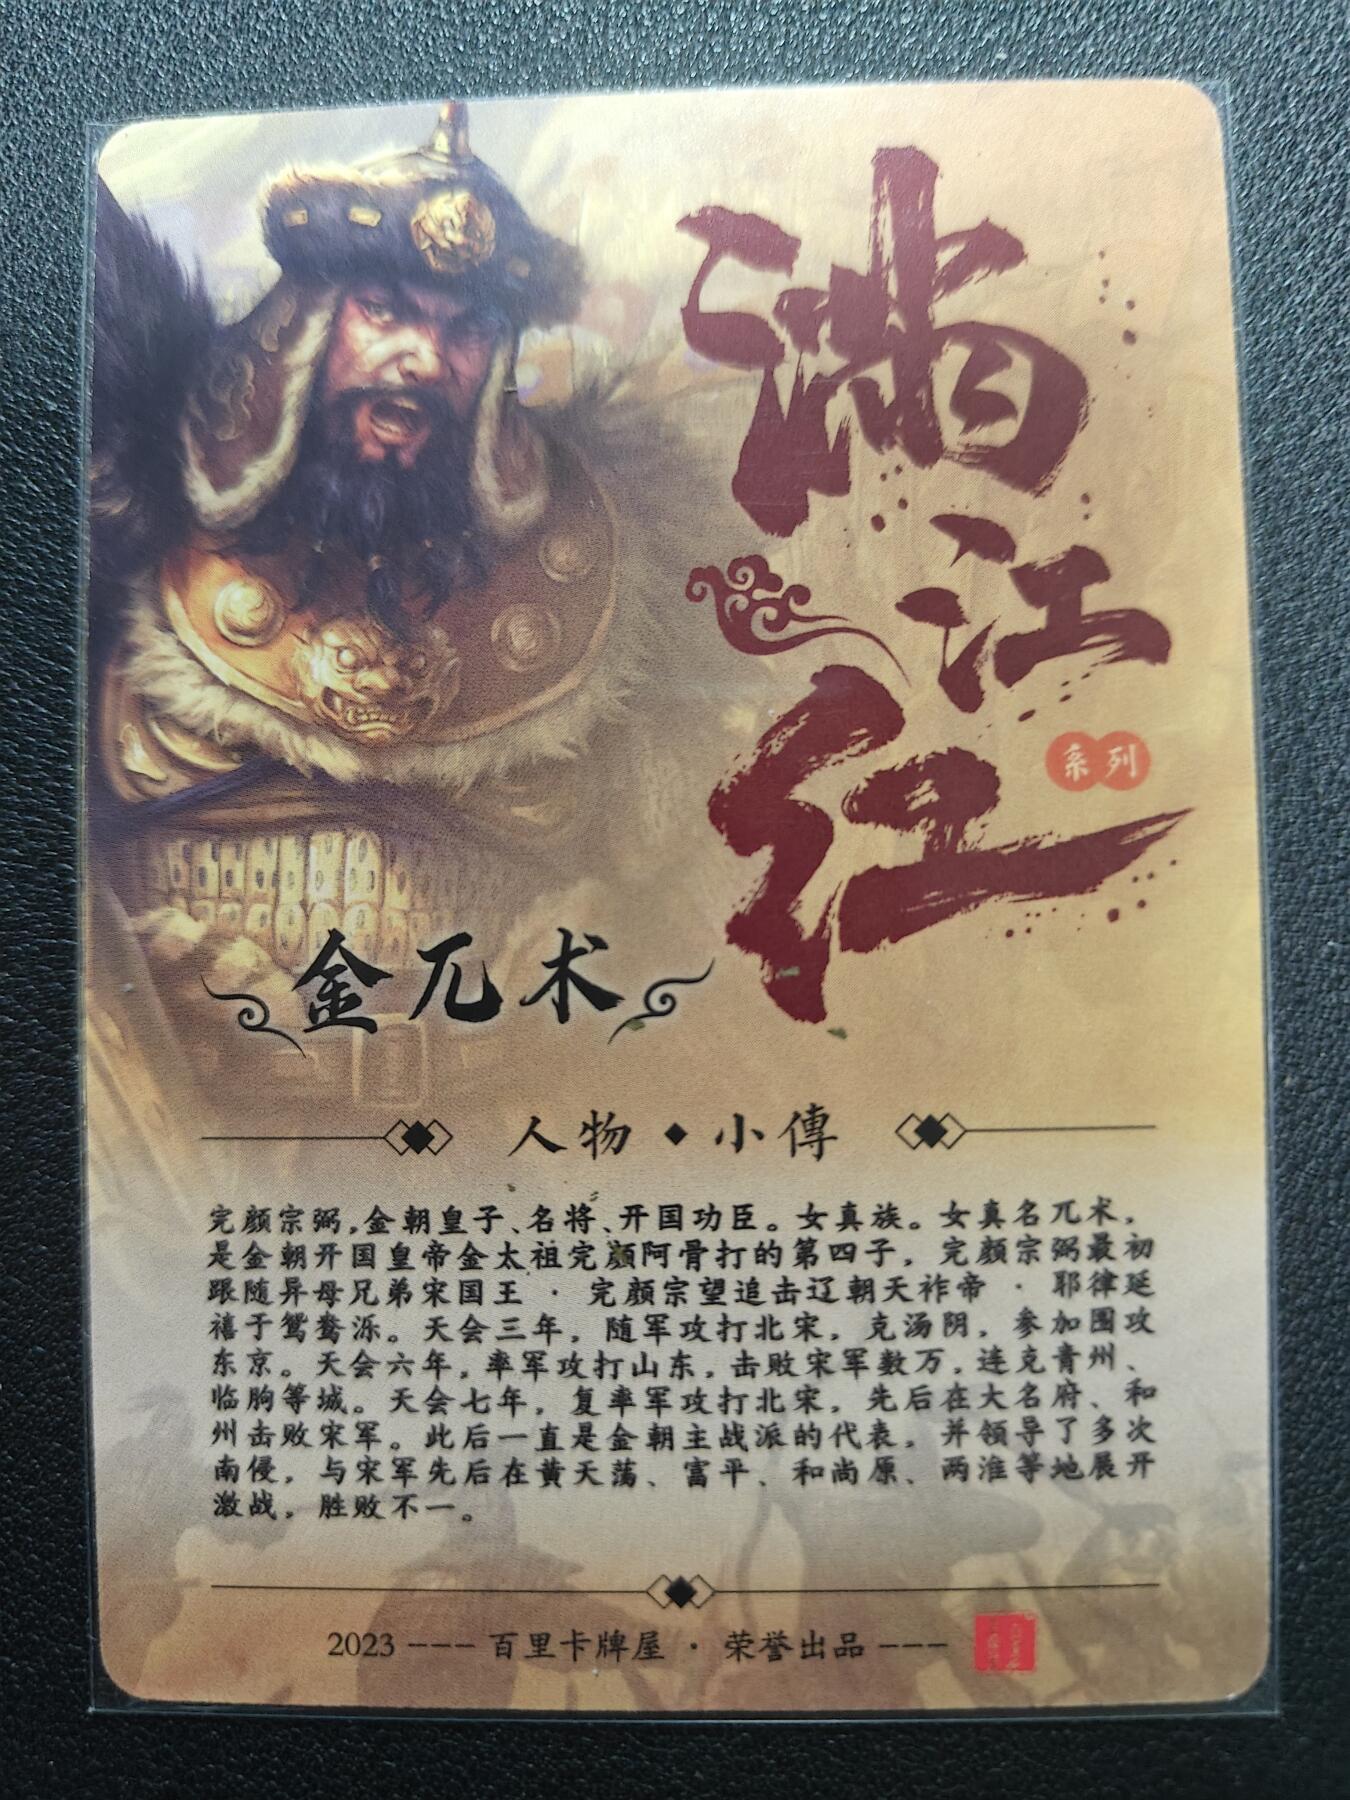 满
江
红
系列
金兀术
人物◆小傳
完颜宗弼,金朝皇子、名将、开国功臣。女真族。女真名兀术，
是金朝开国皇帝金太祖完颜阿骨打的第四子，完颜宗弼最初
跟随异母兄弟宋国王·完颜宗望追击辽朝天祚帝·耶律延
禧于鸳鸯泺。天会三年，随军攻打北宋，克汤阴，参加围攻
东京。天会六年，率军攻打山东，击败宋军数万，连克青州、
临朐等城。天会七年，复率军攻打北宋，先后在大名府、和
州击败宋军。此后一直是金朝主战派的代表，并领导了多次
南侵，与宋军先后在黄天荡、富平、和尚原、两淮等地展开
激战，胜败不一。
2023---百里卡牌屋·荣誉出品---